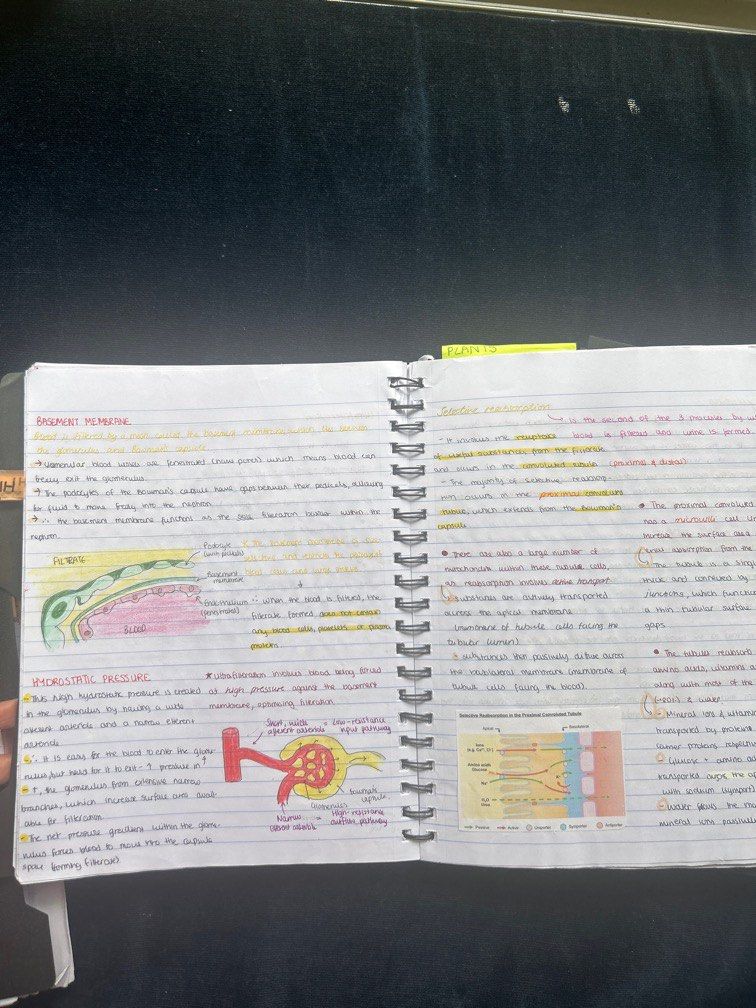 PLANTS
BASEMENT MEMBRANE
Blood is filtered by a mesh called the basement membrane, which lies between
the glomerulus and Bowman's capsule
→ Glomerular blood vessels are fenestrated (have pores) which means blood can
freely exit the glomerulus
→ The podocytes of the Bowman's capsule have gaps between their pedicels, allowing
for fluid to move freely into the nephron
→ ∴ the basement membrane functions as the sole filtration barrier within the
nephron
FILTRATE
Podocyte
(with pedicels)
Basement
membrane
Endothelium
(fenestrated)
BLOOD
∴ When the blood is filtered, the
filtrate formed does not contain
any blood cells, platelets or plasma
proteins.
HYDROSTATIC PRESSURE
* ultrafiltration involves blood being forced
at high pressure against the basement
membrane, optimising filtration
- This high hydrostatic pressure is created
in the glomerulus by having a wide
afferent arteriole and a narrow efferent
arteriole
- ∴ it is easy for the blood to enter the glome-
rulus, but hard for it to exit - ↑ pressure in ↑
- +, the glomerulus form extensive narrow
branches, which increase surface area avail-
able for filtration
- The net pressure gradient within the glome-
rulus forces blood to move into the capsule
space (forming filtrate)
Short, wide
afferent arteriole
= Low-resistance
input pathway
Bowman's
capsule
Glomerulus
Narrow
efferent arteriole
= High-resistance
output pathway
Selective reabsorption
↳ is the second of the 3 processes by w
blood is filtered and urine is formed
- It involves the reuptake
of useful substances from the filtrate
and occurs in the convoluted tubule (proximal & distal)
- The majority of selective reabsorp-
tion occurs in the proximal convoluted
tubule, which extends from the Bowman's
capsule
• There are also a large number of
mitochondria within these tubule cells,
as reabsorption involves active transport
substances are actively transported
across the apical membrane
(membrane of tubule cells facing the
tubular lumen)
substances then passively diffuse across
the basolateral membrane (membrane of
tubule cells facing the blood)
Selective Reabsorption in the Proximal Convoluted Tubule
Apical
Basolateral
Ions
Amino acids
Glucose
Na⁺
K⁺
H₂O
Urea
Passive
Active
Uniporter
Symporter
Antiporter
• The proximal convoluted
has a microvilli cell
the surface area
absorption from the
The tubule is a sing
thick and connected by
junctions, which function
a thin tubular surface
gaps
• The tubules reabsorb
amino acids, vitamins a
along with most of the
& water
- Mineral ions & vitamin
transported by protein
carrier proteins respective
Glucose + amino ac
transported across the
with sodium (symport)
Water follows the mov
mineral ions passively